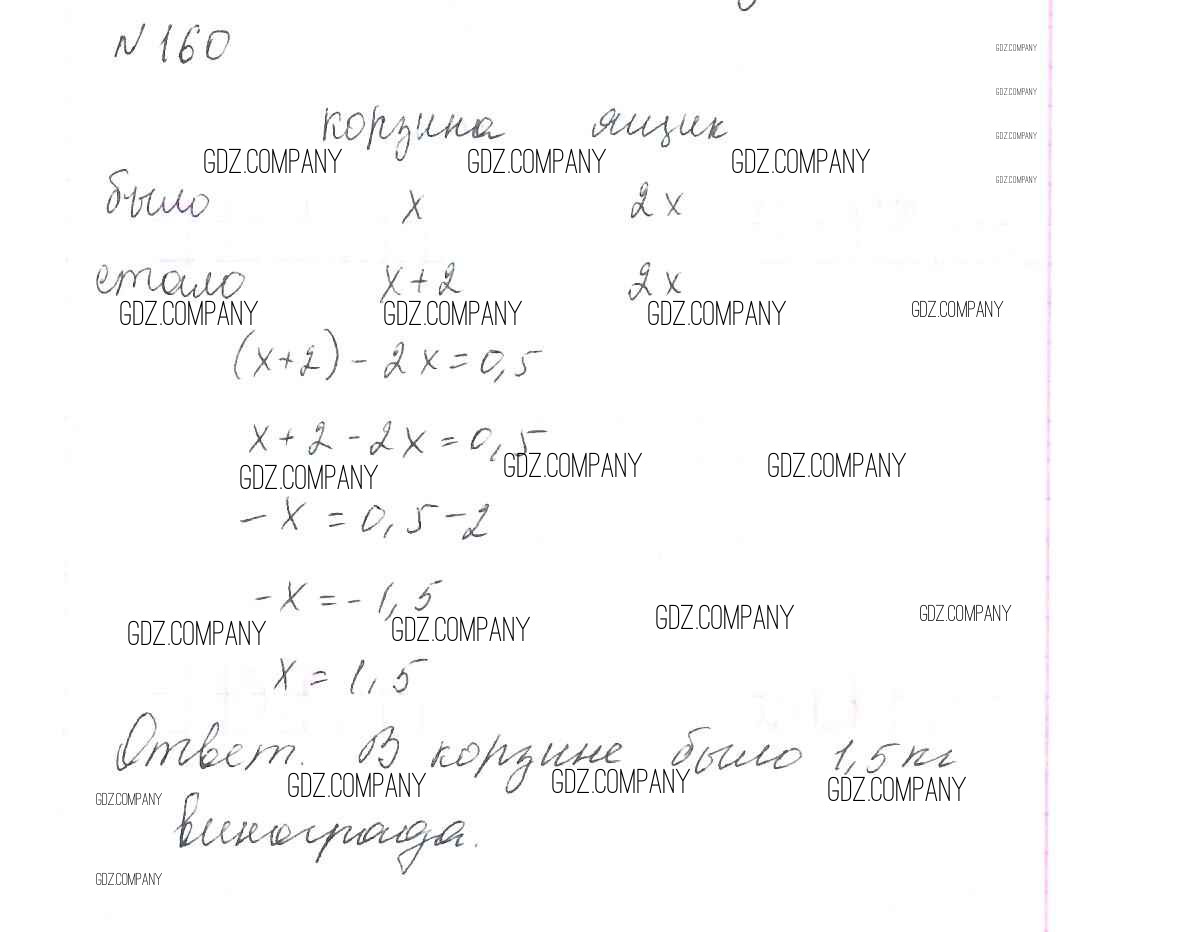 N 160
GDZ.COMPANY
GDZ.COMPANY
корзина ящик
GDZ.COMPANY
GDZ.COMPANY GDZ.COMPANY GDZ.COMPANY
GDZ.COMPANY
было x 2x
стало x+2 2x
GDZ.COMPANY GDZ.COMPANY GDZ.COMPANY GDZ.COMPANY
(x+2) - 2x = 0,5
x+2-2x = 0,5
GDZ.COMPANY GDZ.COMPANY GDZ.COMPANY
-x = 0,5-2
-x = -1,5
GDZ.COMPANY GDZ.COMPANY GDZ.COMPANY GDZ.COMPANY
x = 1,5
Ответ. В корзине было 1,5 кг
GDZ.COMPANY GDZ.COMPANY GDZ.COMPANY GDZ.COMPANY
винограда.
GDZ.COMPANY